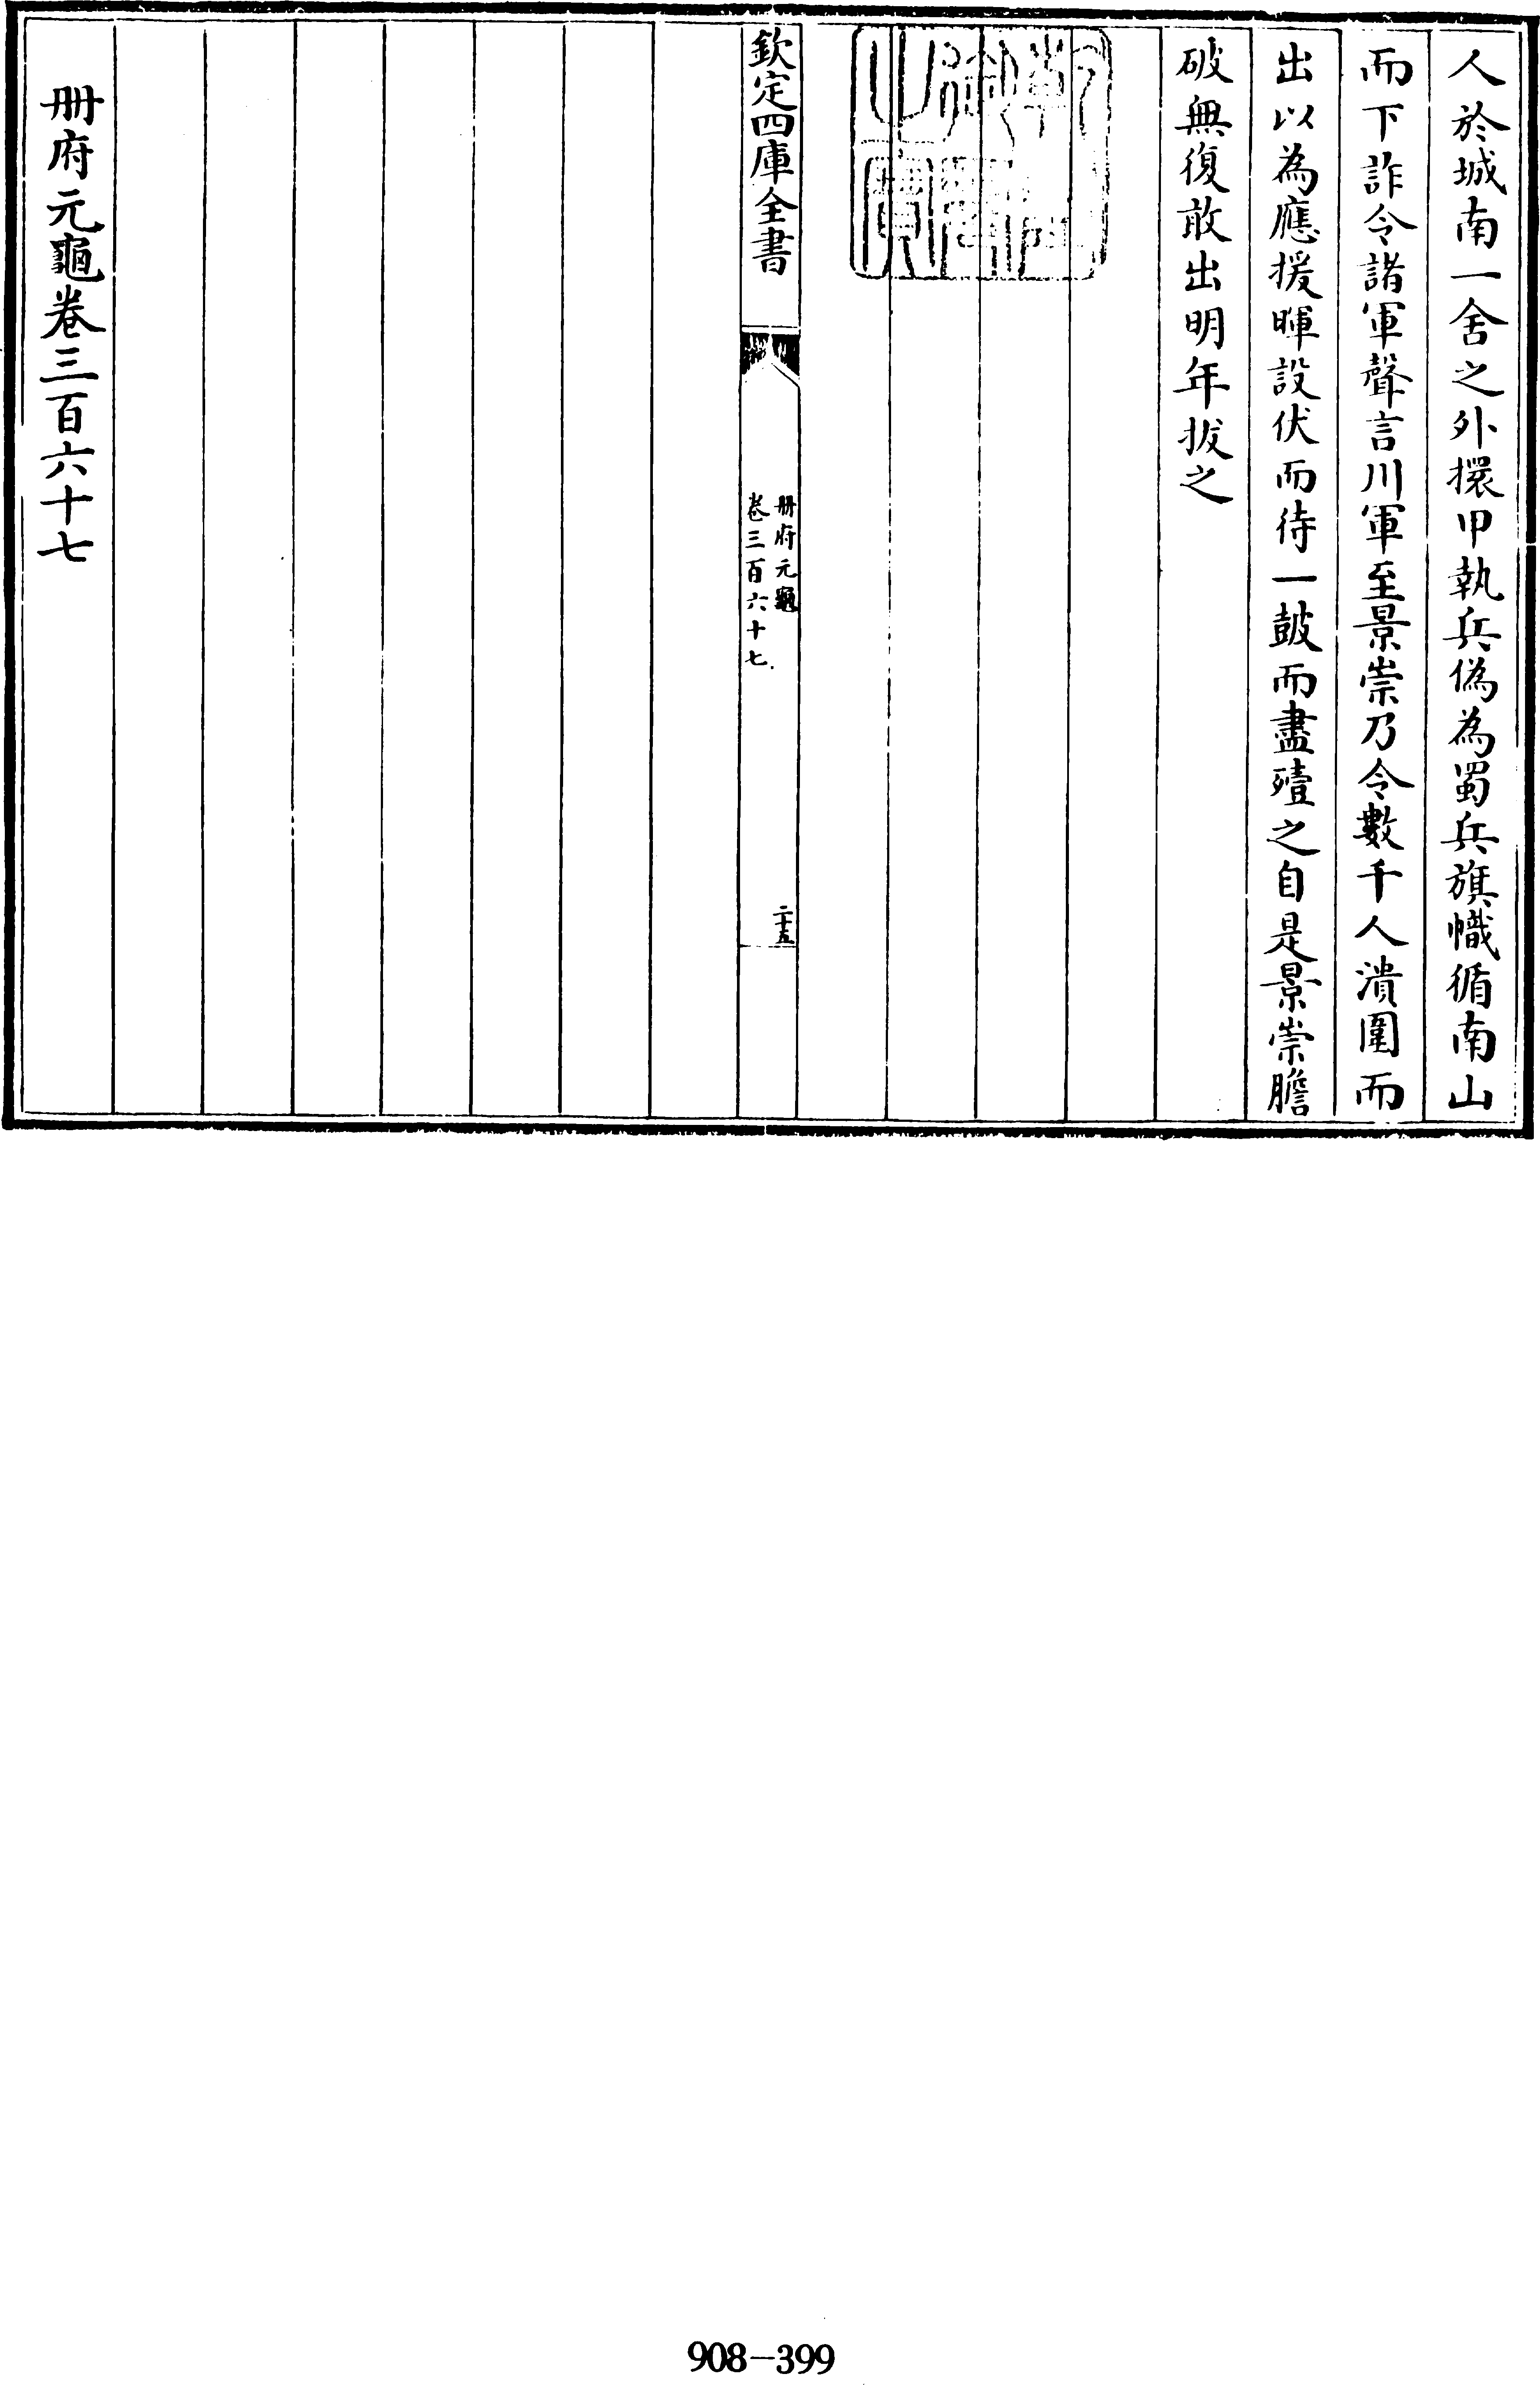 人於城南一舍之外擐甲執兵偽為蜀兵旗幟循南山
而下詐令諸軍聲言川軍至景崇乃令數千人潰圍而
出以為應援暉設伏而待一鼓而盡殪之自是景崇膽
破無復敢出明年拔之
欽定四庫全書
册府元龜
卷三百六十七
二十五
册府元龜卷三百六十七
908-399